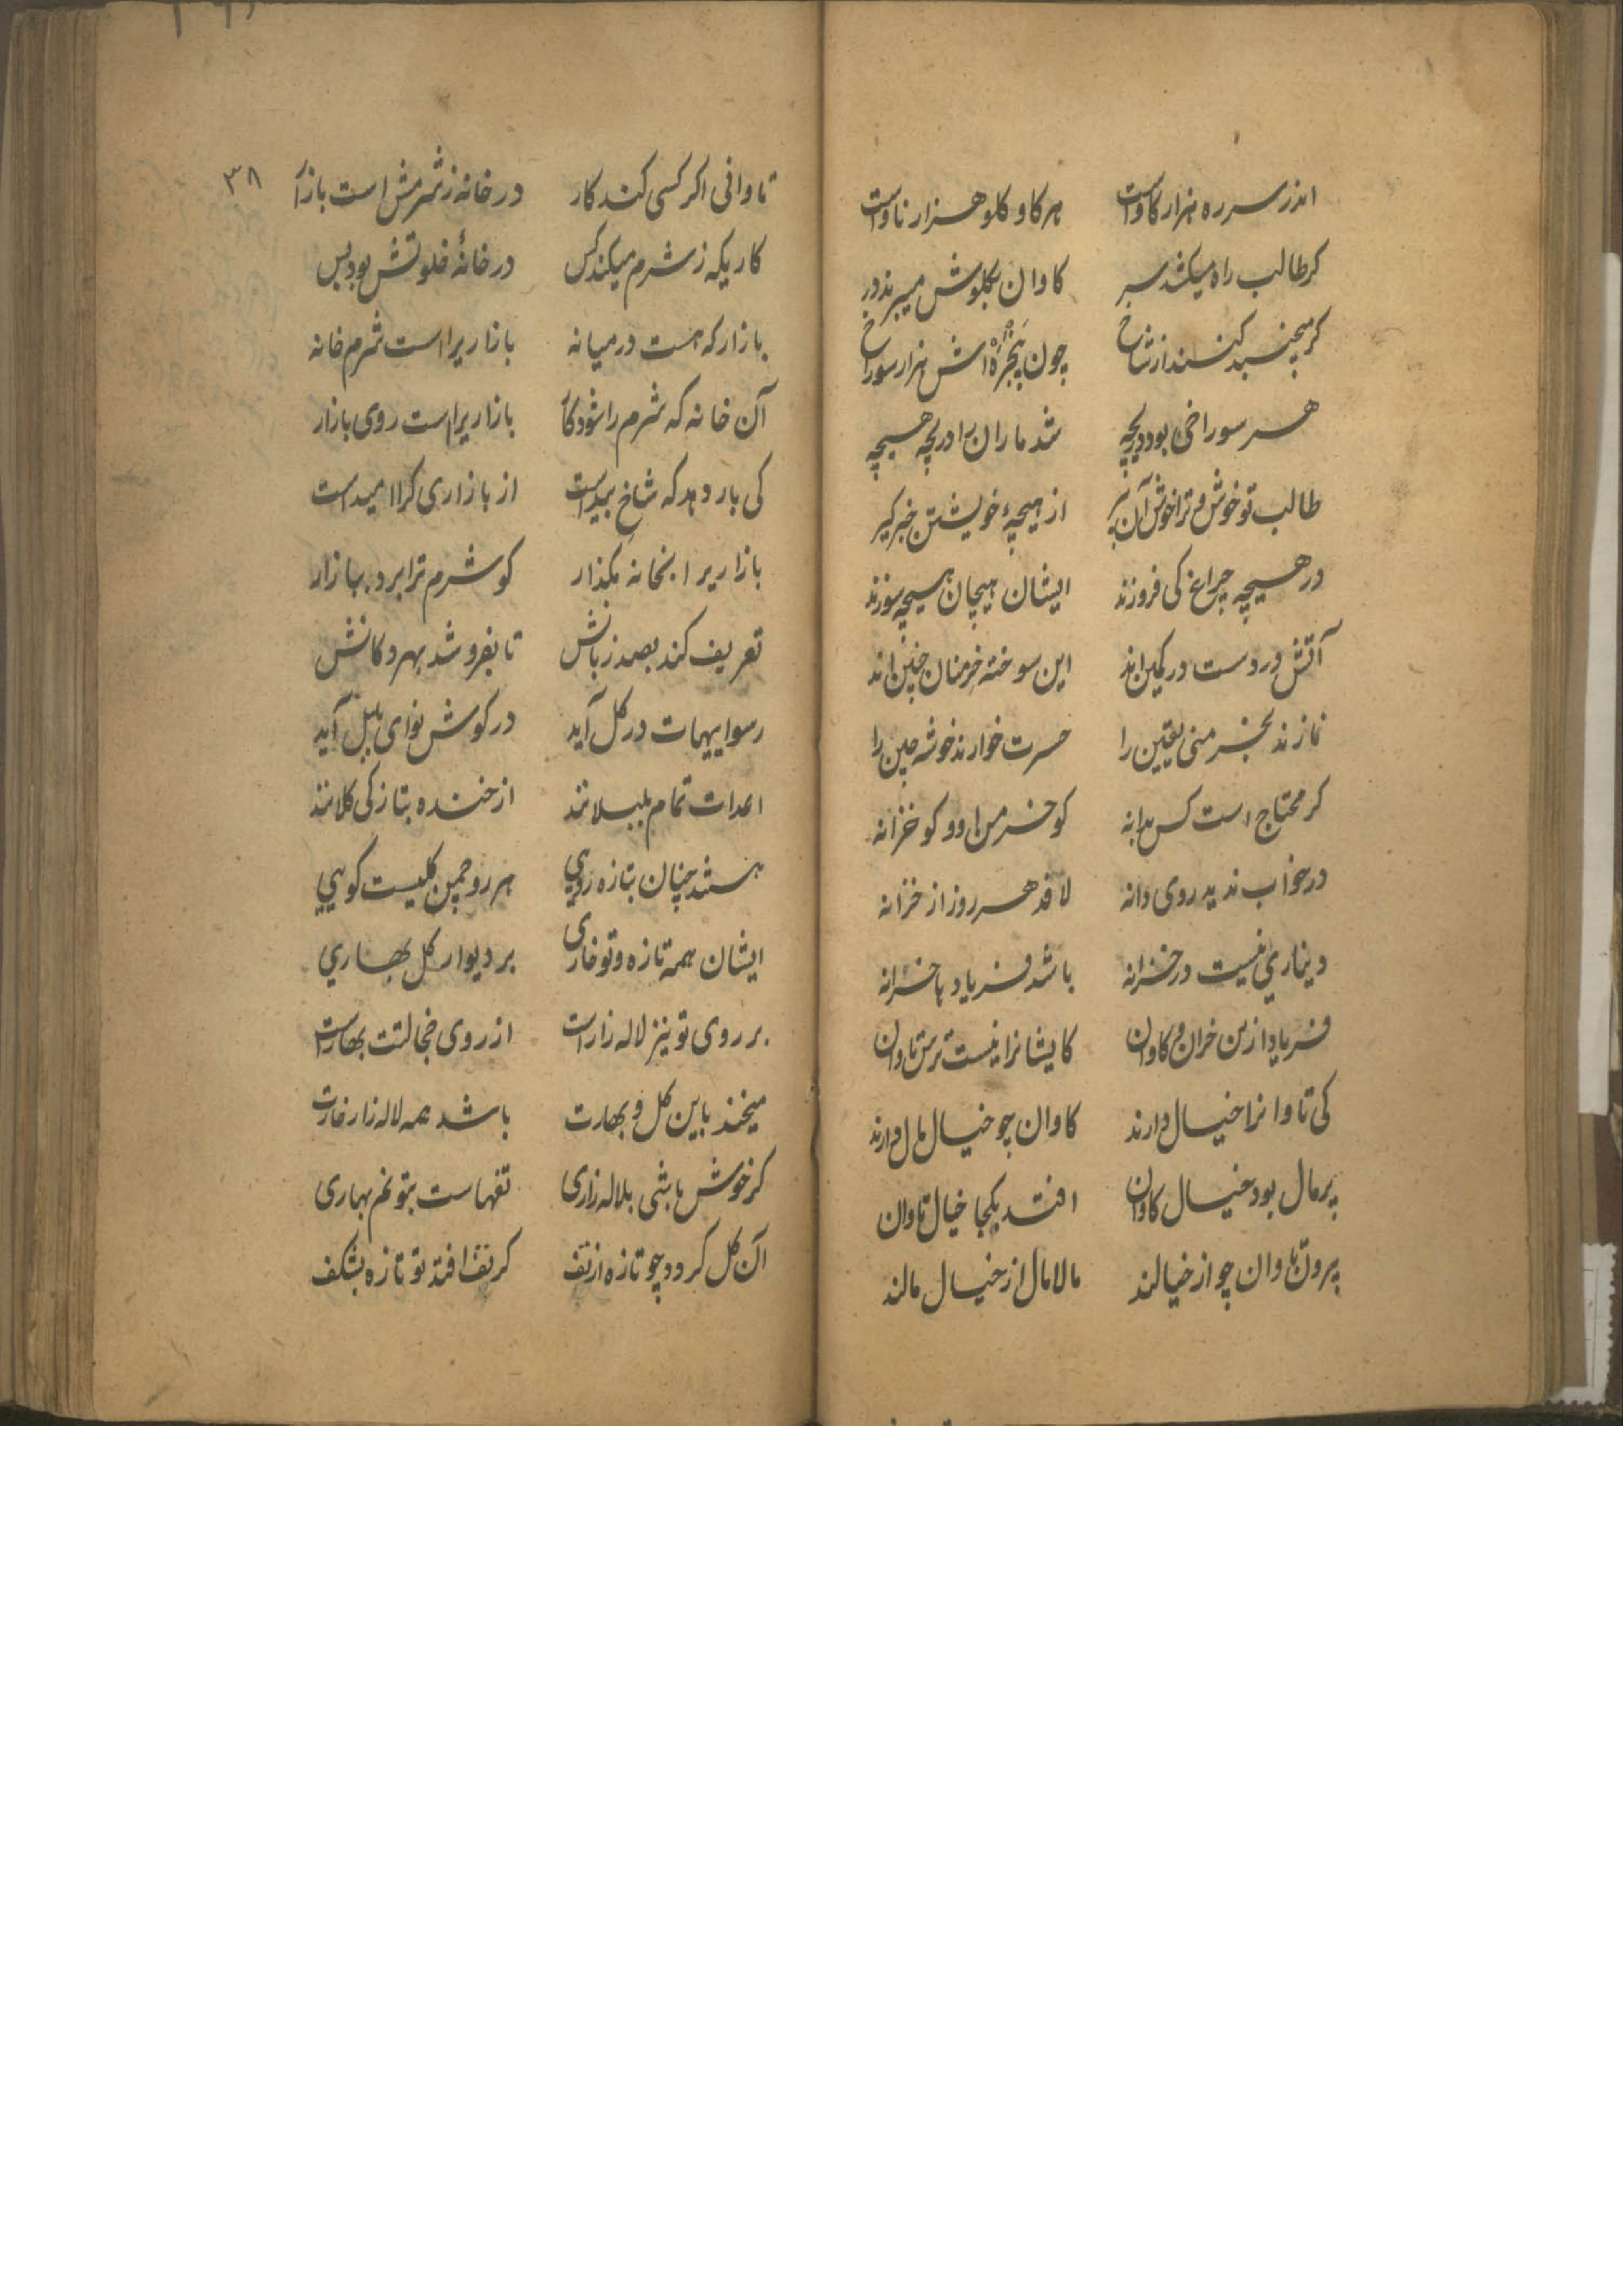 اندر سر ره هزار کاو است هر کاو کلو هزار ناو است
کر طالب راه میکشد سر کاوان بکلوش میبرند در
کر میجنبد کنند از شاخ چون پنجره اش هزار سوراخ
هر سوراخی بود دریچه شد ماران را دریچه هیچه
طالب تو خوش و ترا خوش آن به از هیچهٔ خویشتن خبر کیر
در هیچه چراغ کی فروزند ایشان هیچان هیچه سوزند
آتش در دست در کمین اند این سوخته خرمنان چنین اند
نازند بخرمنی یقین را حسرت خوارند خوشه چین را
کر محتاج است کس بدانه کو خرمن او و کو خزانه
در خواب ندید روی دانه لافد هر روز از خزانه
دیناری نیست در خزانه باشد فریاد با خزانه
فریاد ازین خران و کاوان کایشانرا نیست ترس تاوان
کی تاوانرا خیال دارند کاوان چو خیال مال دارند
پرمال بود خیال کاوان افتد بکجا خیال تاوان
پروت تاوان چو از خیالند مالامال از خیال مالند
۳۸
تاوانی اکر کسی کند کار در خانه ز شرمش است بازار
کاریکه ز شرم میکند کس در خانهٔ خلوتش بود بس
بازار که هست در میانه بازاریرا است شرم خانه
آن خانه که شرم را شود کار بازاریرا است روی بازار
کی بار دهد که شاخ بید است از بازاری کرا امید است
بازاریرا بخانه مکذار کو شرم ترا برد ببازار
تعریف کند بصد زبانش تا بفروشد بهر دکانش
رسواییهات در کل آید در کوش نوای بلبل آید
اعدات تمام بلبلانند از خنده بتازکی کلانند
هستند چنان بتازه رویی هر رو چمن کلیست کویی
ایشان همه تازه و تو خاری بر دیوار کل بهاری
بر روی تو نیز لاله زار است از روی خجالتت بهار است
میخند باین کل و بهارت باشد همه لاله زار خارت
کر خوش باشی بلاله زاری تفهاست بتو نم بهاری
آن کل کردد چو تازه از تف کر تف افتد تو تازه بشکف